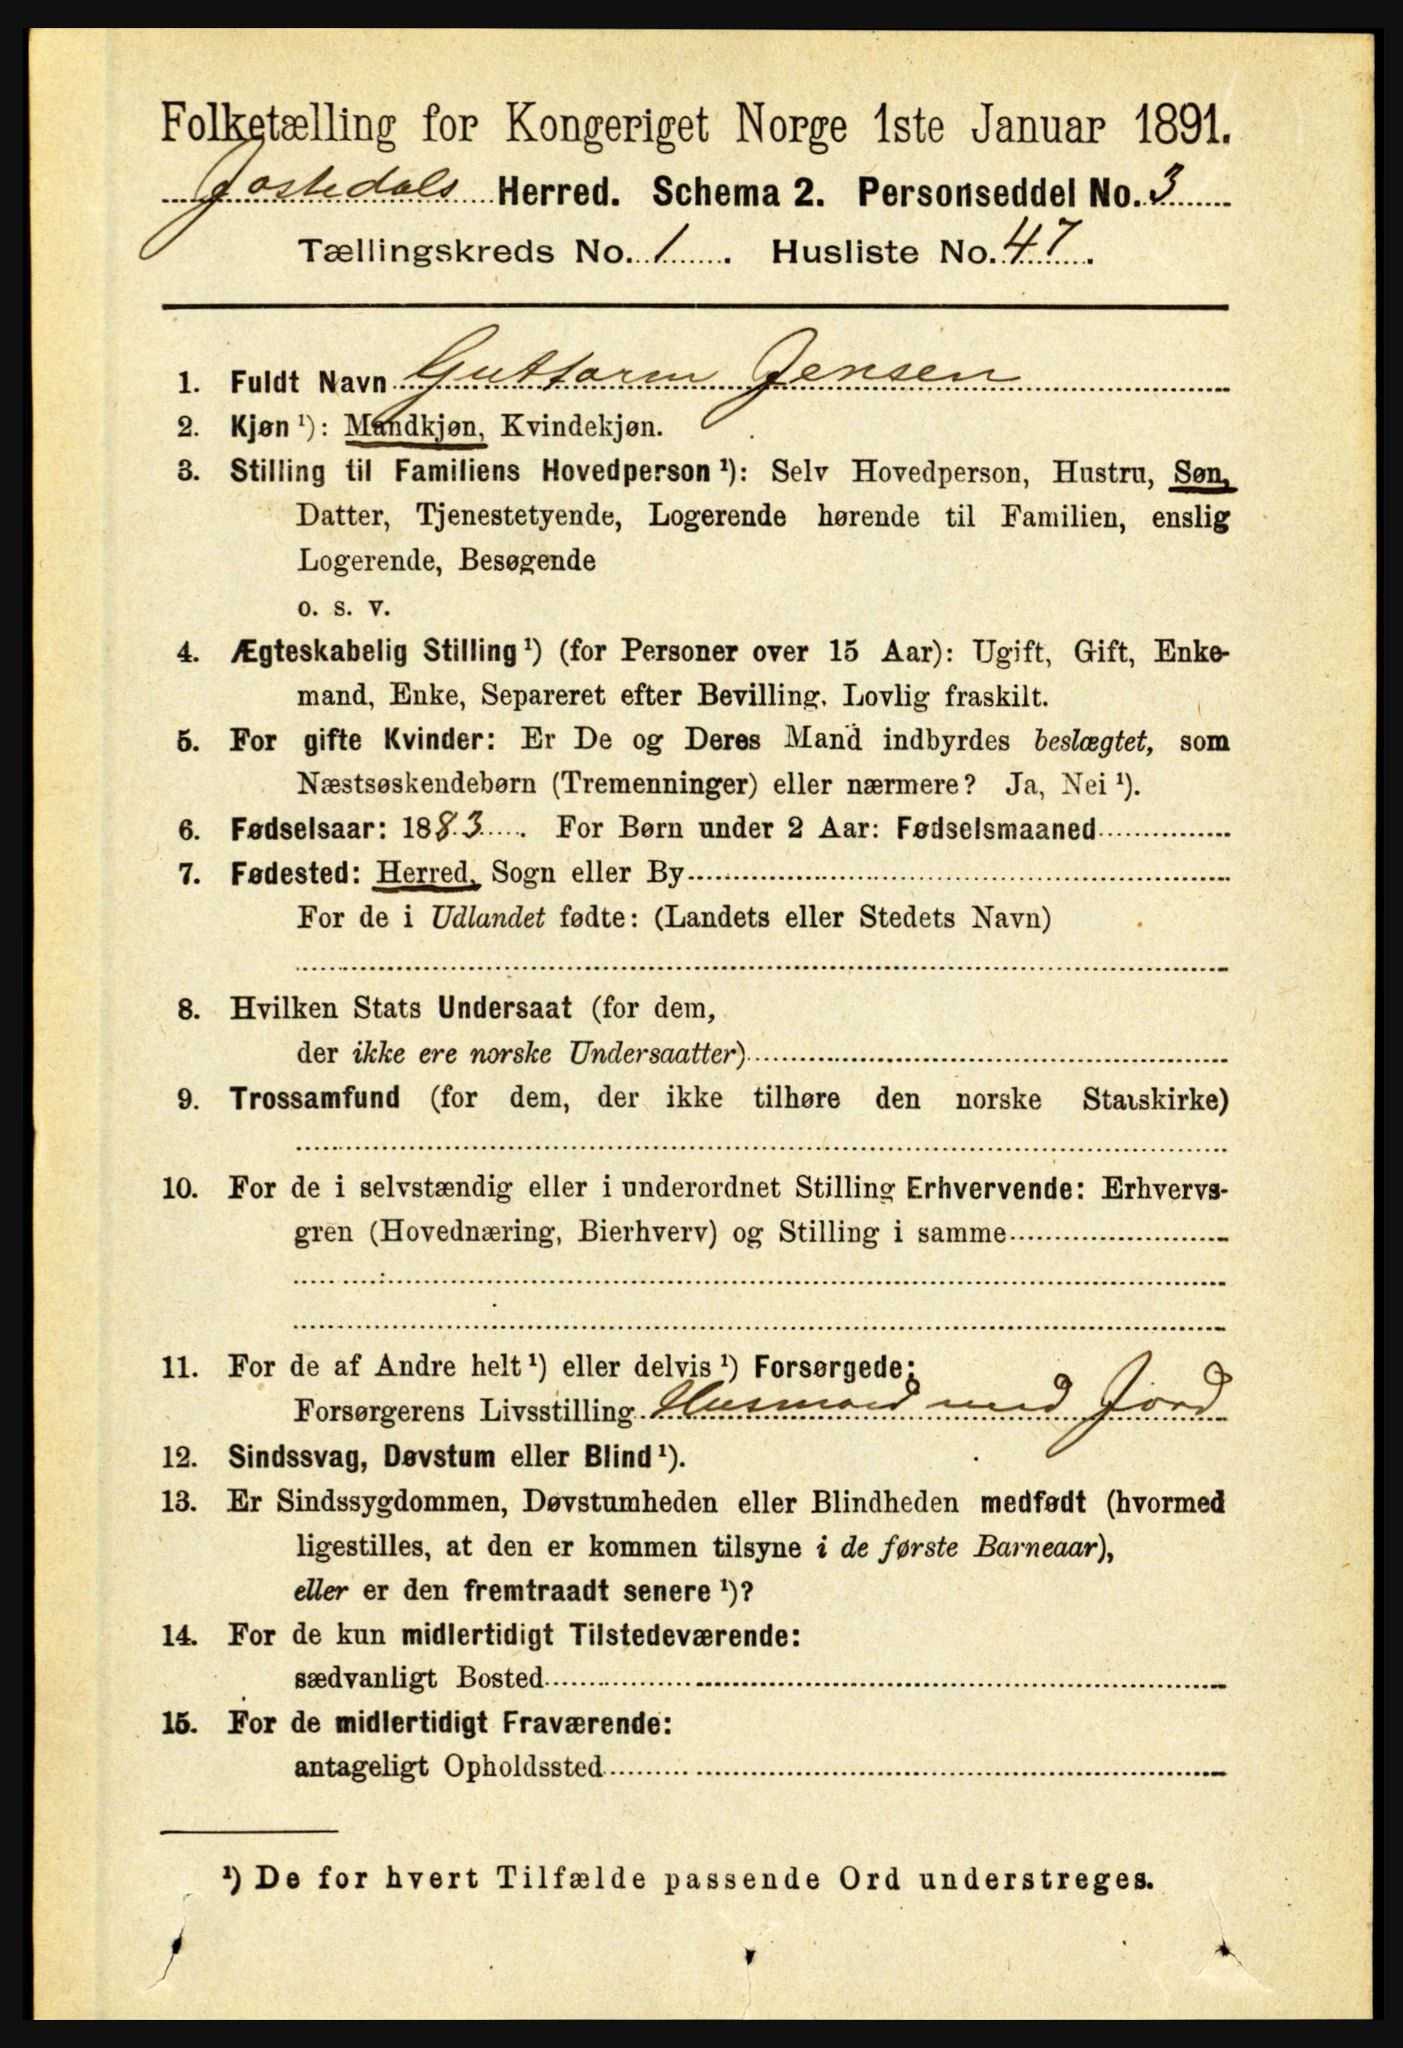 Folketælling for Kongeriget Norge 1ste Januar 1891.
Jostedals Herred. Schema 2. Personseddel No. 3
Tællingskreds No. 1. Husliste No. 47.
1. Fuldt Navn Guttorm Jensen
2. Kjøn ¹): Mandkjøn, Kvindekjøn.
3. Stilling til Familiens Hovedperson ¹): Selv Hovedperson, Hustru, Søn,
Datter, Tjenestetyende, Logerende hørende til Familien, enslig
Logerende, Besøgende
o. s. v.
4. Ægteskabelig Stilling ¹) (for Personer over 15 Aar): Ugift, Gift, Enke-
mand, Enke, Separeret efter Bevilling. Lovlig fraskilt.
5. For gifte Kvinder: Er De og Deres Mand indbyrdes beslægtet, som
Næstsøskendebørn (Tremenninger) eller nærmere? Ja, Nei ¹).
6. Fødselsaar: 1883. For Børn under 2 Aar: Fødselsmaaned
7. Fødested: Herred, Sogn eller By
For de i Udlandet fødte: (Landets eller Stedets Navn)
8. Hvilken Stats Undersaat (for dem,
der ikke ere norske Undersaatter)
9. Trossamfund (for dem, der ikke tilhøre den norske Statskirke)
10. For de i selvstændig eller i underordnet Stilling Erhvervende: Erhvervs-
gren (Hovednæring, Bierhverv) og Stilling i samme
11. For de af Andre helt ¹) eller delvis ¹) Forsørgede:
Forsørgerens Livsstilling Husmand med Jord
12. Sindssvag, Døvstum eller Blind ¹).
13. Er Sindssygdommen, Døvstumheden eller Blindheden medfødt (hvormed
ligestilles, at den er kommen tilsyne i de første Barneaar),
eller er den fremtraadt senere ¹)?
14. For de kun midlertidigt Tilstedeværende:
sædvanligt Bosted
15. For de midlertidigt Fraværende:
antageligt Opholdssted
¹) De for hvert Tilfælde passende Ord understreges.